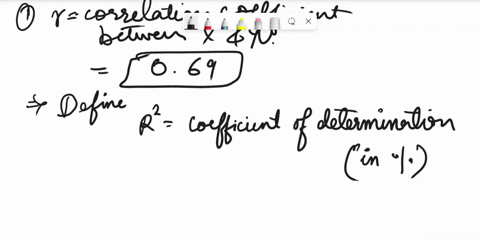 ① r = correlation coefficient
between X & Y
= 0.69
⇒ Define
R² = coefficient of determination
(in %)